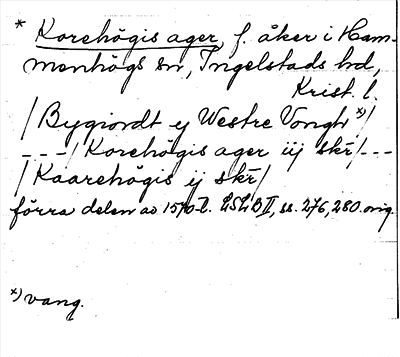 * Korehögis ager, f. åker i Ham-
menhögs sn, Ingelstads hd,
Krist. l.
/ Bygiordt ej Westre Vongh *) /
- - - / Korehögis ager iij skr̄ / - - -
/ Kaarehögis ij skr̄ /
förra delen av 1570-t. LSLB II, ss. 276, 280. orig.
*) vang.